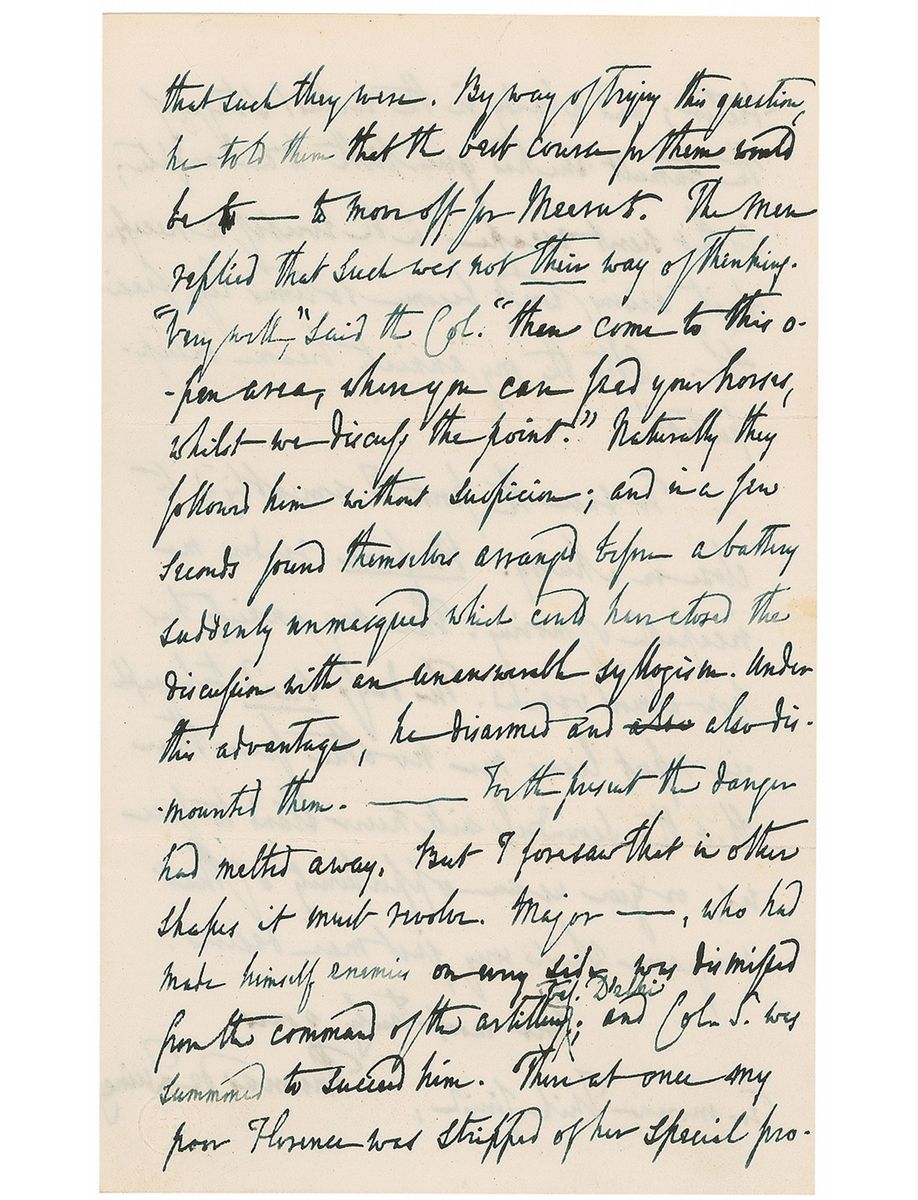 that such they were. By way of trying this question,
he told them that the best course for them would
be to — to move off for Meerut. The men
replied that such was not their way of thinking.
"Very well," said the Col. "then come to this o-
-pen area, where you can feed your horses,
whilst we discuss the point." Naturally they
followed him without suspicion; and in a few
seconds found themselves arranged before a battery
suddenly unmasqued which could have closed the
discussion with an unanswerable syllogism. Under
this advantage, he disarmed and also also dis-
-mounted them. — For the present the danger
had melted away. But I foresaw that in other
shapes it must revolve. Major —, who had
made himself enemies on every side, was dismissed
bef. Delhi
from the command of the artillery; and Col. S. was
summoned to succeed him. Then at once my
poor Florence was stripped of her special pro-